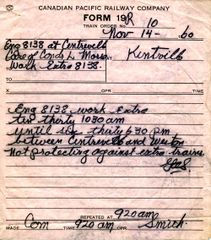 CANADIAN PACIFIC RAILWAY COMPANY
FORM 19R
TRAIN ORDER No. 10
Nov 14 - 60
Eng 8138 at Centreville Kentville
Care of Condr L. Morse
Work Extra 8138.
Eng 8138 work Extra
ten thirty 1030 am
until six thirty 630 pm
between Centreville and Weston
Not protecting against extra trains
REPEATED AT 920am
Com 920am Smith